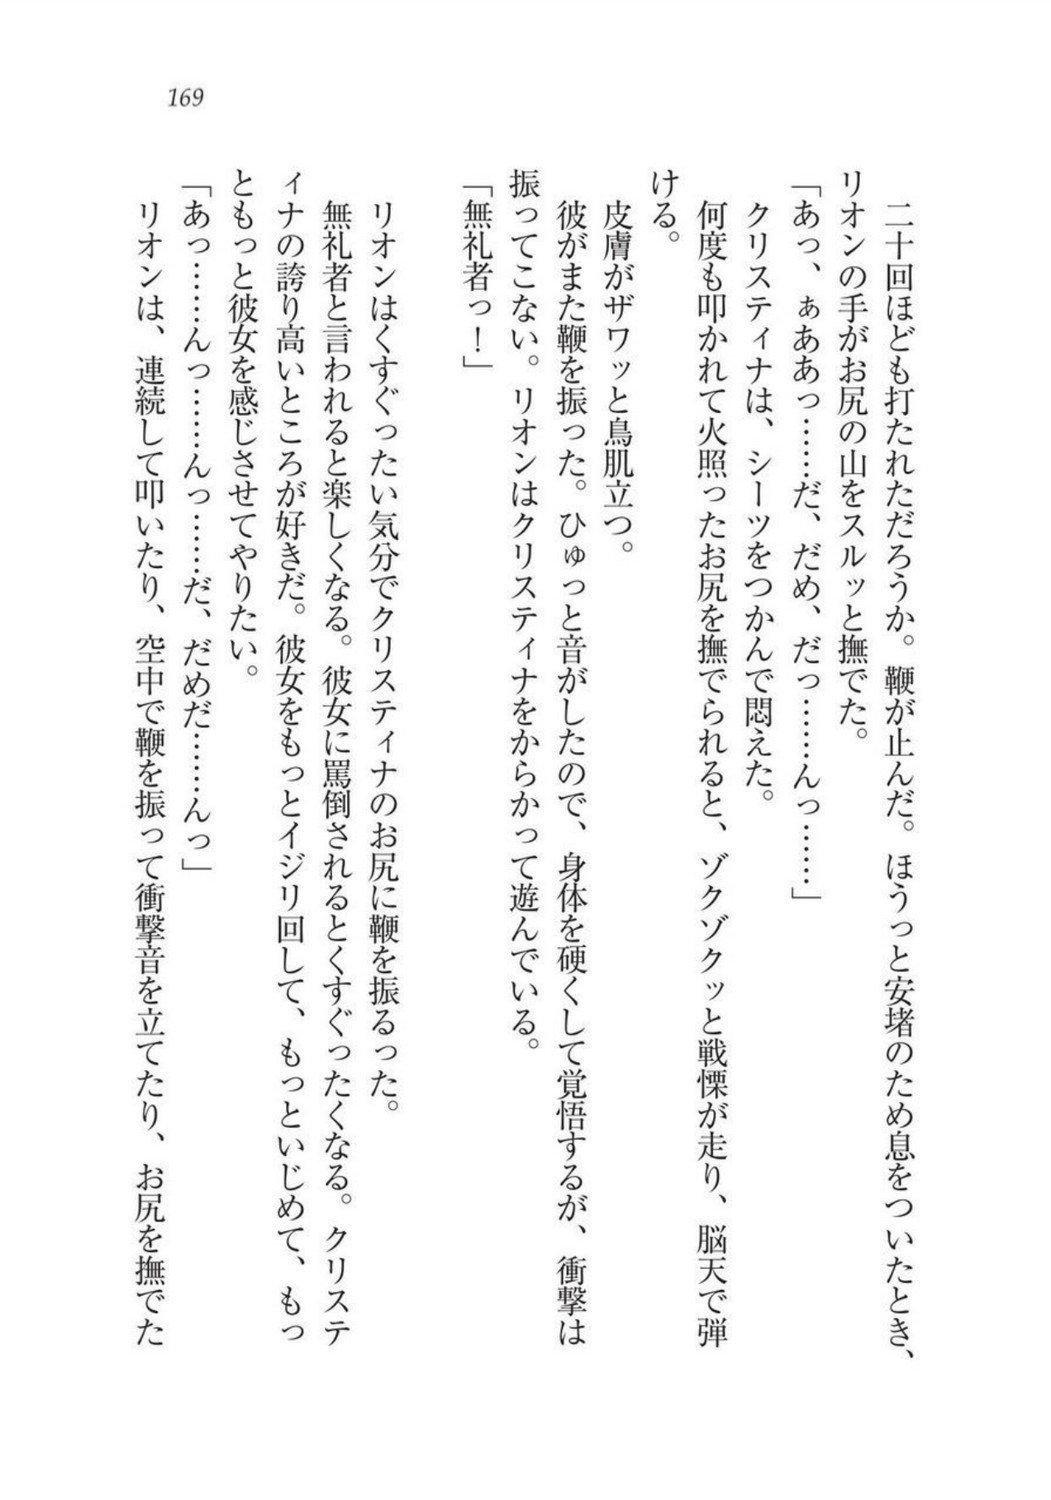 169
二十回ほども打たれただろうか。鞭が止んだ。ほうっと安堵のため息をついたとき、
リオンの手がお尻の山をスルッと撫でた。
「あっ、ぁああっ……だ、だめ、だっ……んっ……」
クリスティナは、シーツをつかんで悶えた。
何度も叩かれて火照ったお尻を撫でられると、ゾクゾクッと戦慄が走り、脳天で弾
ける。
皮膚がザワッと鳥肌立つ。
彼がまた鞭を振った。ひゅっと音がしたので、身体を硬くして覚悟するが、衝撃は
振ってこない。リオンはクリスティナをからかって遊んでいる。
「無礼者っ！」
リオンはくすぐったい気分でクリスティナのお尻に鞭を振るった。
無礼者と言われると楽しくなる。彼女に罵倒されるとくすぐったくなる。クリステ
ィナの誇り高いところが好きだ。彼女をもっとイジリ回して、もっといじめて、もっ
ともっと彼女を感じさせてやりたい。
「あっ……んっ……んっ……だ、だめだ……んっ」
リオンは、連続して叩いたり、空中で鞭を振って衝撃音を立てたり、お尻を撫でた